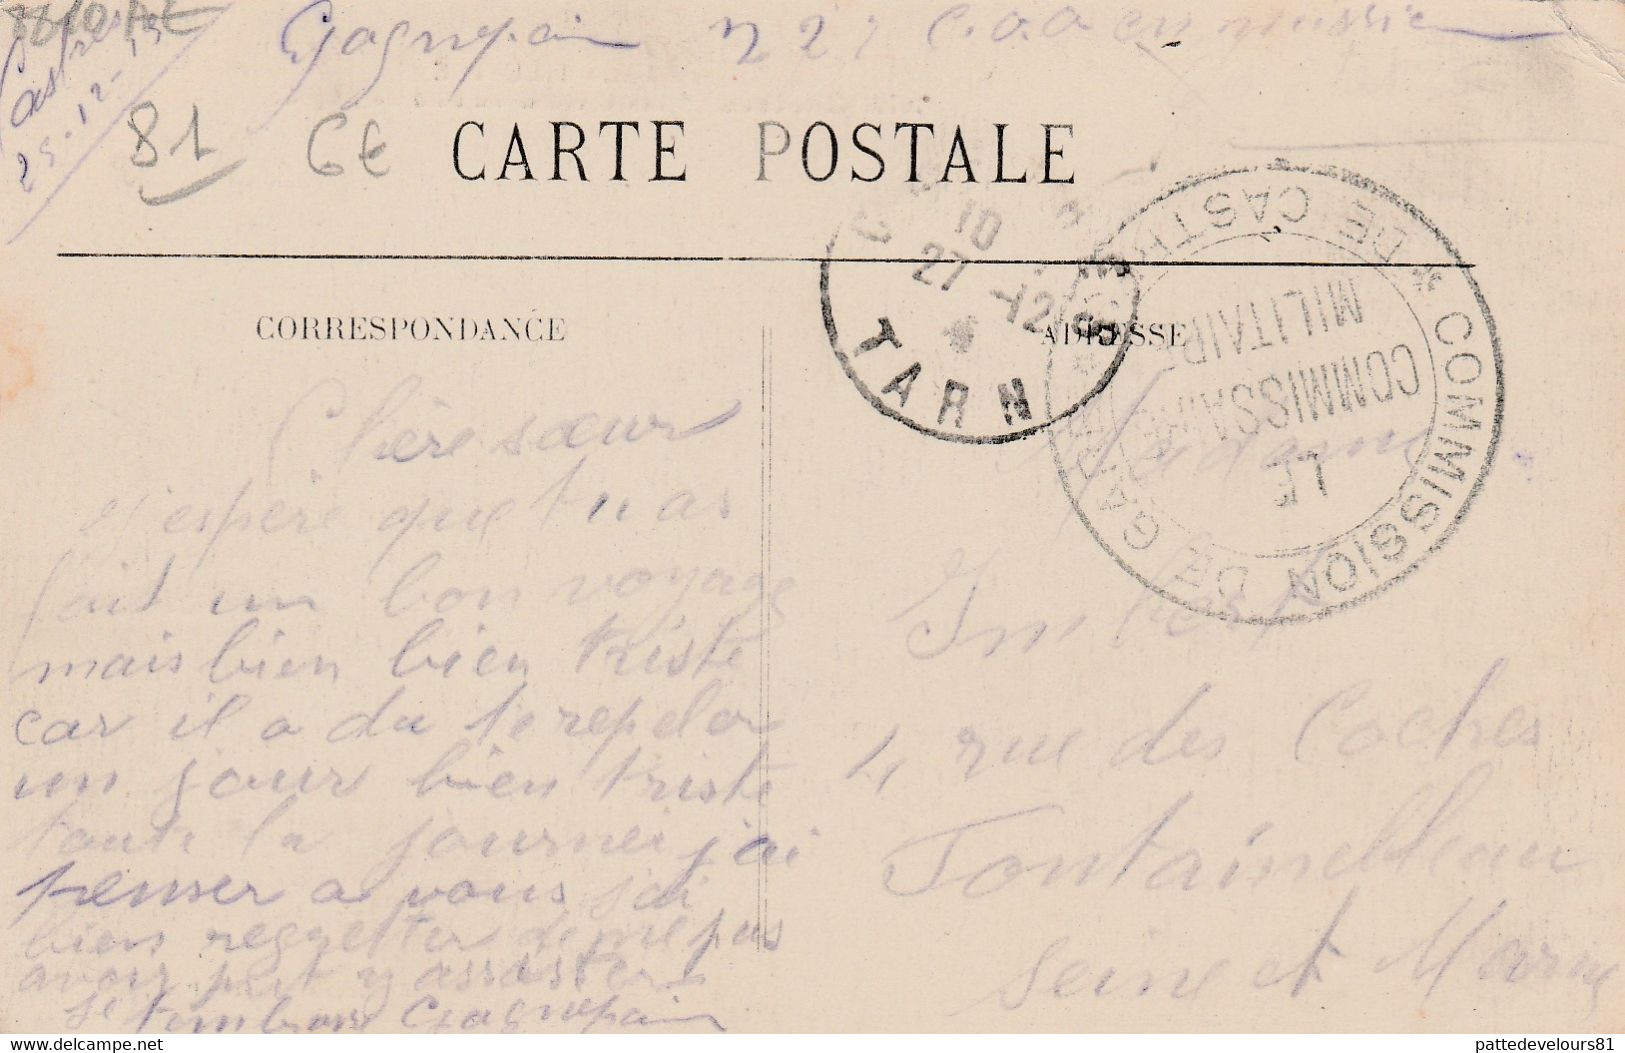 Castres
25-12-15
Gagnepain 22e c.o.a en mission
81
6€
CARTE POSTALE
10
27 -12
TARN
* COMMISSION DE GARE * DE CASTRES
LE
COMMISSAIRE
MILITAIRE
CORRESPONDANCE
ADRESSE
Chère sœur
j'espère que tu as
fait un bon voyage
mais bien bien triste
car il a du te repelor
un jour bien triste
toute la journei j'ai
penser a vous j'ai
bien regretter de ne pas
avoir put y assister
je t'embrasse Gagnepain
Madame
Imbert
4 rue des Coches
Fontainebleau
Seine et Marne
www.delcampe.net
pattedevelours81